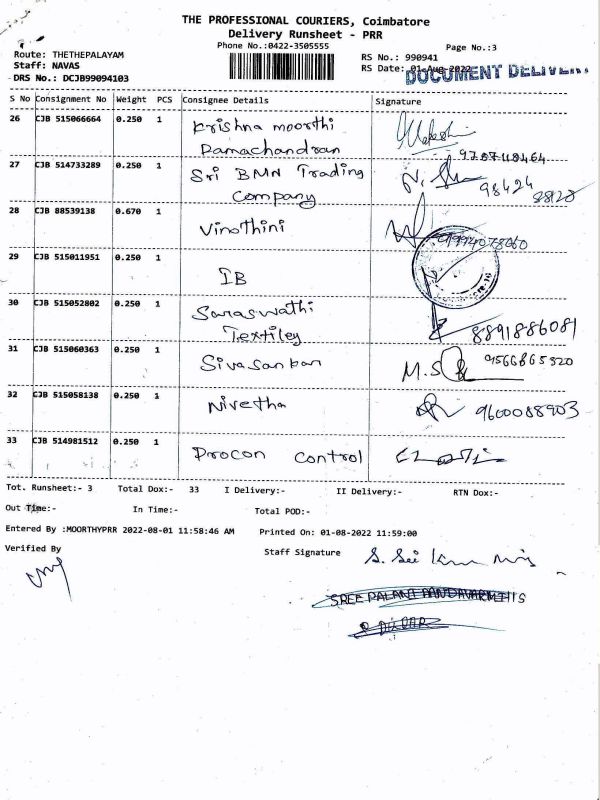 THE PROFESSIONAL COURIERS, Coimbatore
Delivery Runsheet - PRR
Phone No.:0422-3505555
Page No.:3
Route: THETHEPALAYAM
Staff: NAVAS
DRS No.: DCJB99094103
RS No.: 990941
RS Date: 01-Aug-2022
DOCUMENT DELIVERY
S No Consignment No Weight PCS Consignee Details Signature
26 CJB 515066664 0.250 1 Krishna moorthi
Ramachandran
27 CJB 514733289 0.250 1 Sri BMN Trading
Company 98424
28 CJB 88539138 0.670 1 Vinothini
9994078060
29 CJB 515011951 0.250 1
IB
30 CJB 515052802 0.250 1 Saraswathi
Textiley 8891886081
31 CJB 515060363 0.250 1 Sivasankar M.S 9566865320
32 CJB 515058138 0.250 1 Nivetha 9600088903
33 CJB 514981512 0.250 1 Procon Control
Tot. Runsheet:- 3 Total Dox:- 33 I Delivery:- II Delivery:- RTN Dox:-
Out Time:- In Time:- Total POD:-
Entered By :MOORTHYPRR 2022-08-01 11:58:46 AM Printed On: 01-08-2022 11:59:00
Verified By Staff Signature